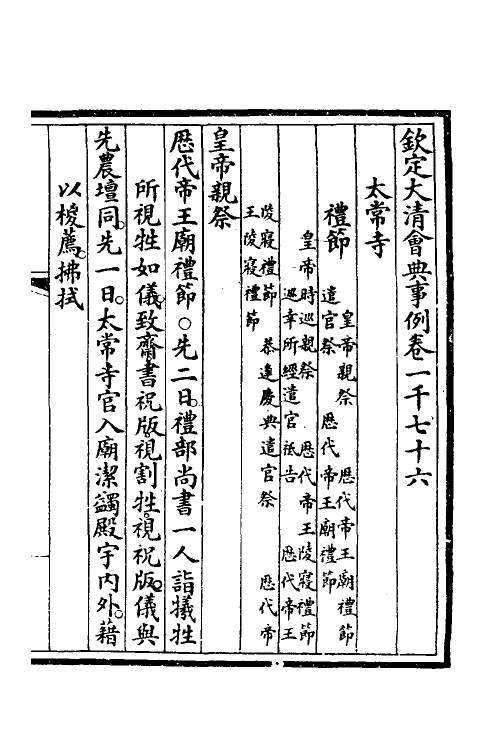 欽定大清會典事例卷一千七十六
太常寺
禮節
皇帝親祭　厯代帝王廟禮節
遣官祭　厯代帝王廟禮節
皇帝時巡親祭　厯代帝王陵寢禮節
巡幸所經遣官祗告　厯代帝王
陵寢禮節　恭逢慶典遣官祭　厯代帝
王陵寢禮節
皇帝親祭
厯代帝王廟禮節○先二日。禮部尚書一人詣犧牲
所視牲如儀。致齋書祝版。視割牲。視祝版。儀與
先農壇同。先一日。太常寺官入廟潔蠲殿宇內外。藉
以椶薦。拂拭